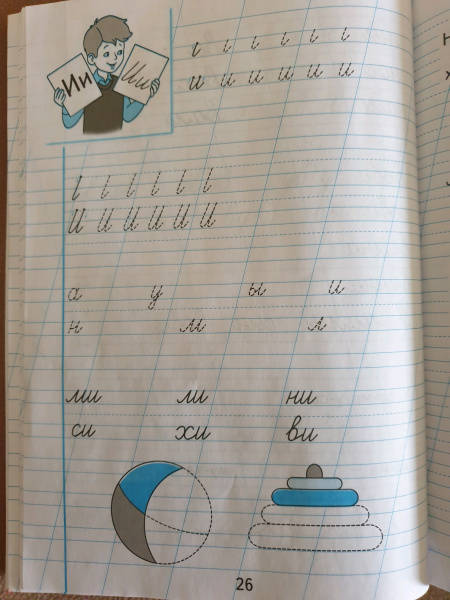 Ии Ии
и и и и и и
И И И И И И
а у ы и
н м л
ми ли ни
си хи ви
26